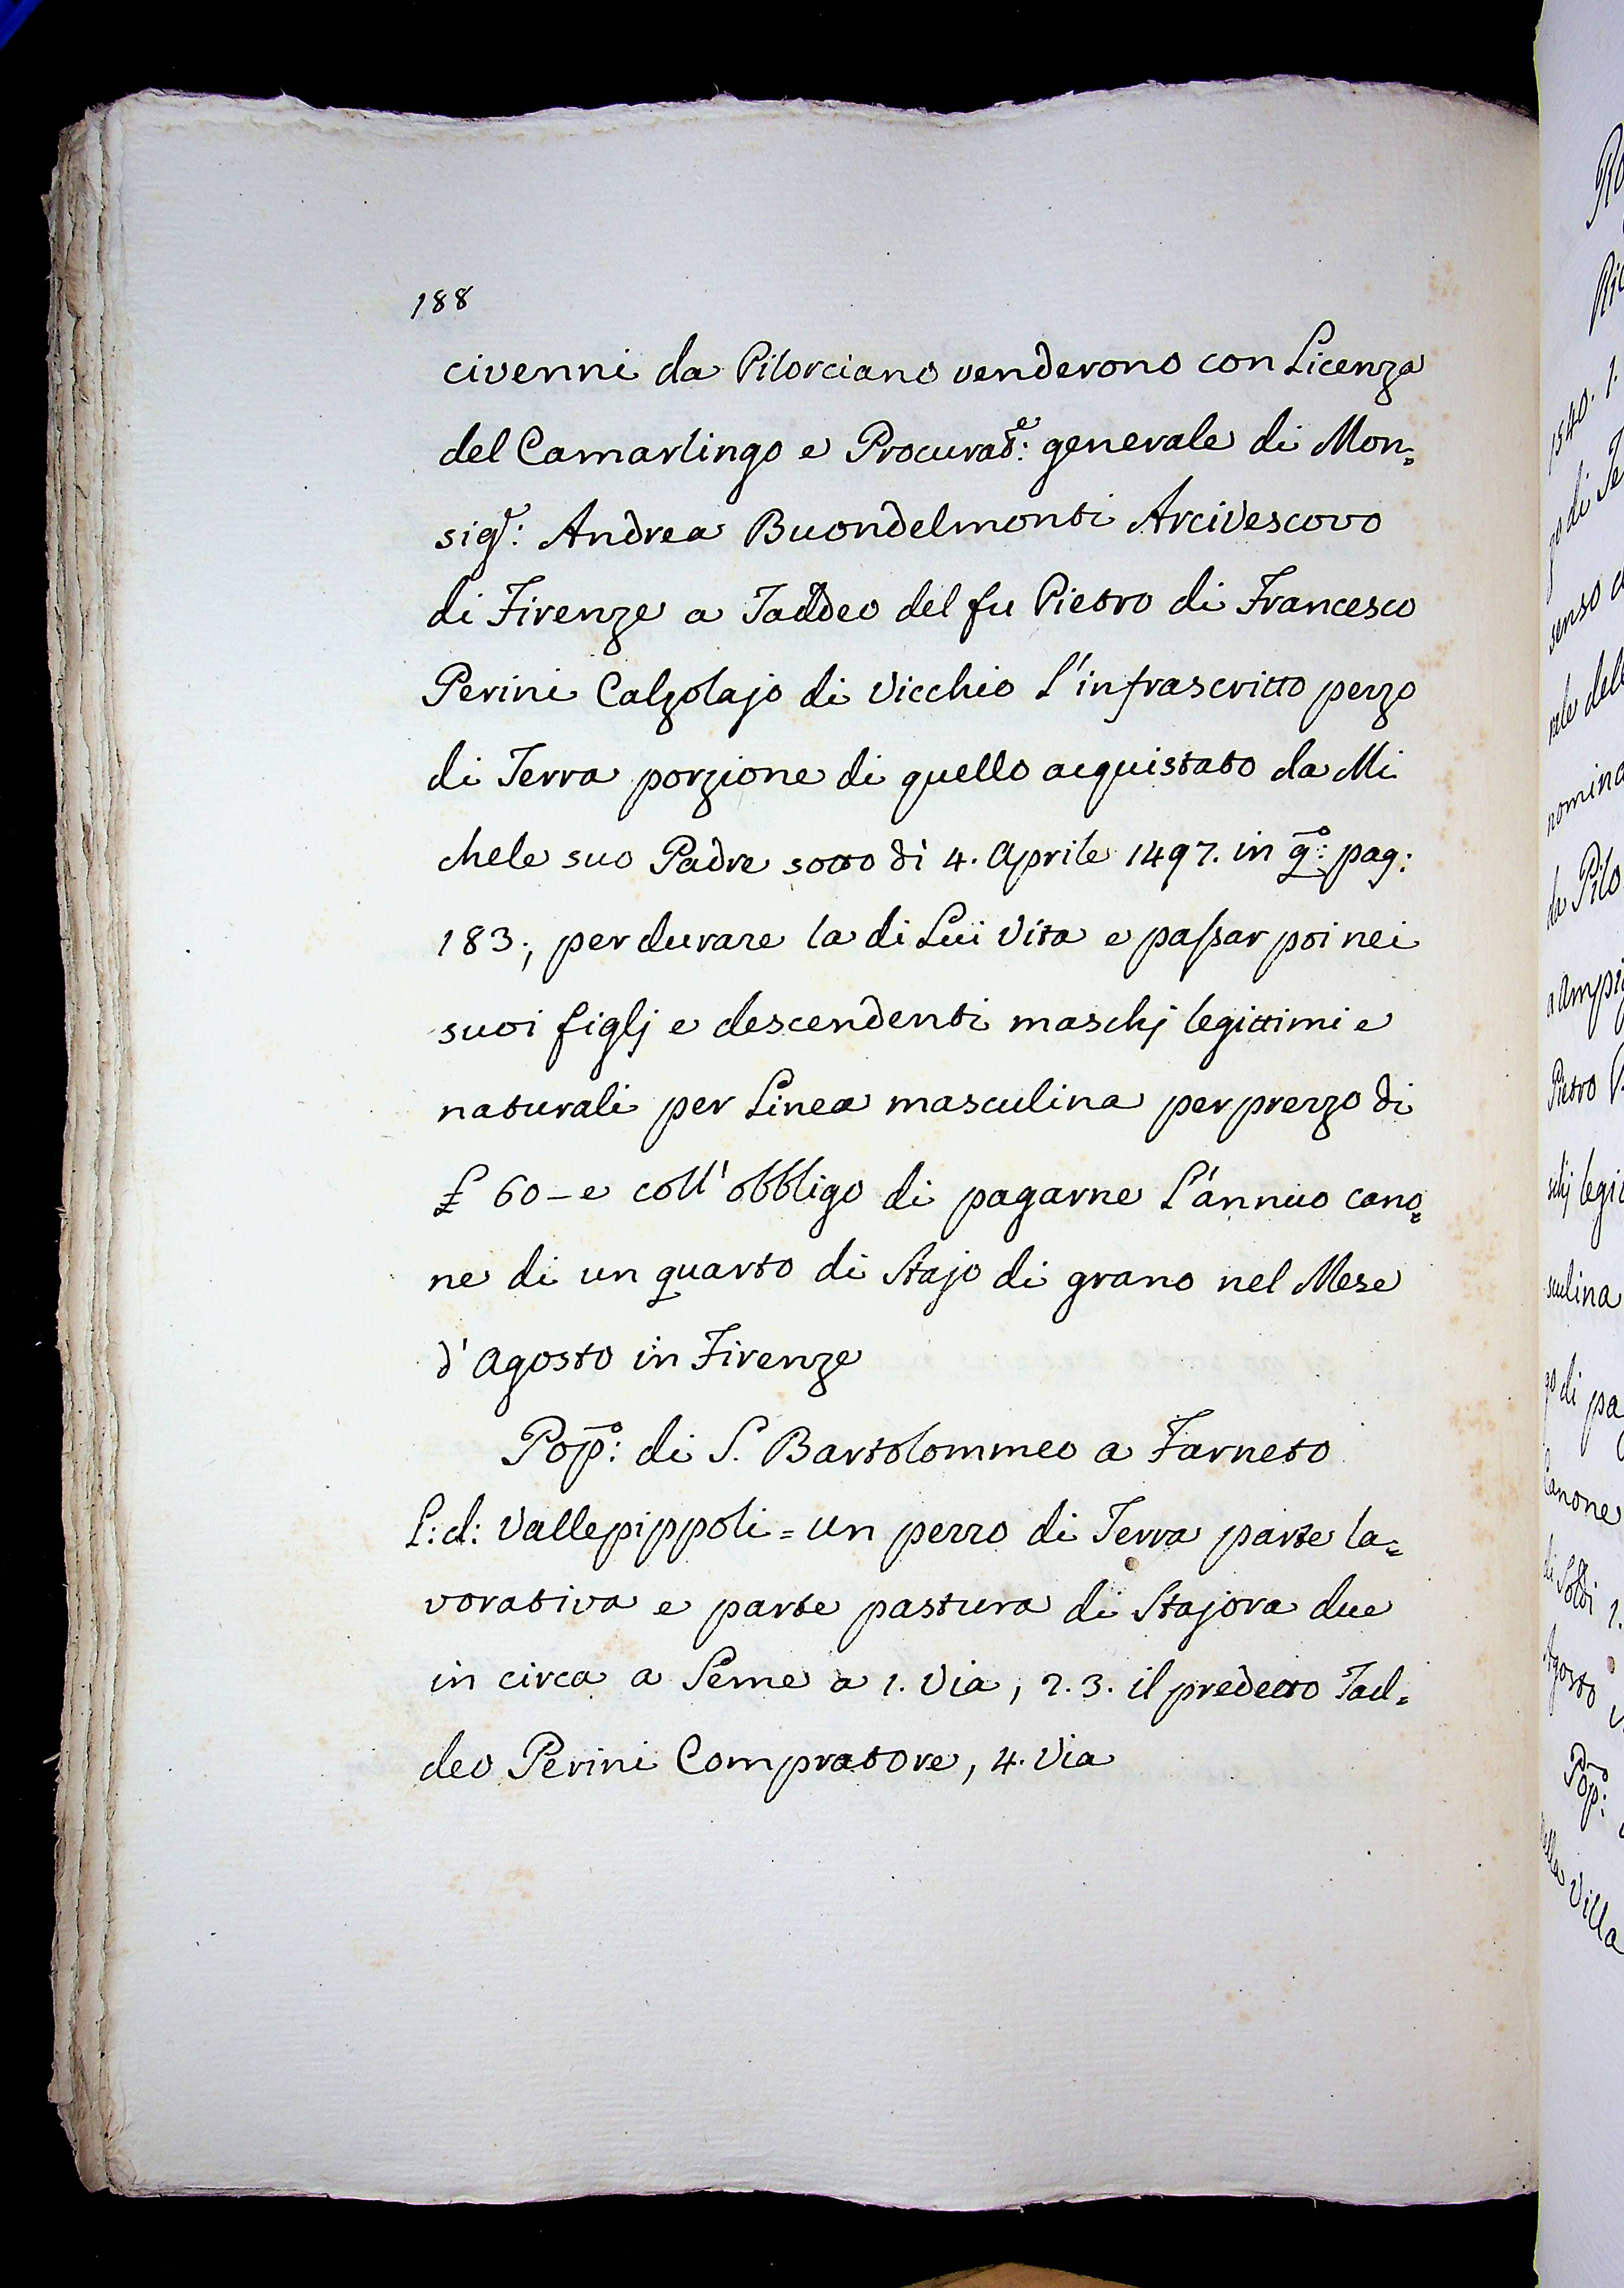 188
civenni da Pilorciano venderono con Licenza
del Camarlingo e Procurat.e: generale di Mon=
sig.r: Andrea Buondelmonti Arcivescovo
di Firenze a Taddeo del fu Pietro di Francesco
Perini Calzolajo di Vicchio l'infrascritto pezzo
di Terra porzione di quello acquistato da Mi
chele suo Padre sotto dì 4. Aprile 1497. in q.o: pag:
183; per durare la di Lui Vita e passar poi nei
suoi figlj e descendenti maschj legittimi e
naturali per Linea masculina per prezzo di
£ 60 - e coll' obbligo di pagarne l'annuo cano=
ne di un quarto di Stajo di grano nel Mese
d' Agosto in Firenze
Pop.o: di S. Bartolommeo a Farneto
L:d: Vallepippoli = un pezzo di Terra parte la=
vorativa e parte pastura di Stajora due
in circa a Seme a 1. Via, 2. 3. il predetto Tad=
deo Perini Compratore, 4. Via
1540. 1.
senso
nomina
da Pilo
Pietro
schj legi
sculina
di pa
Canone
di Soldi 1.
Agosto
Pop.o:
della Villa